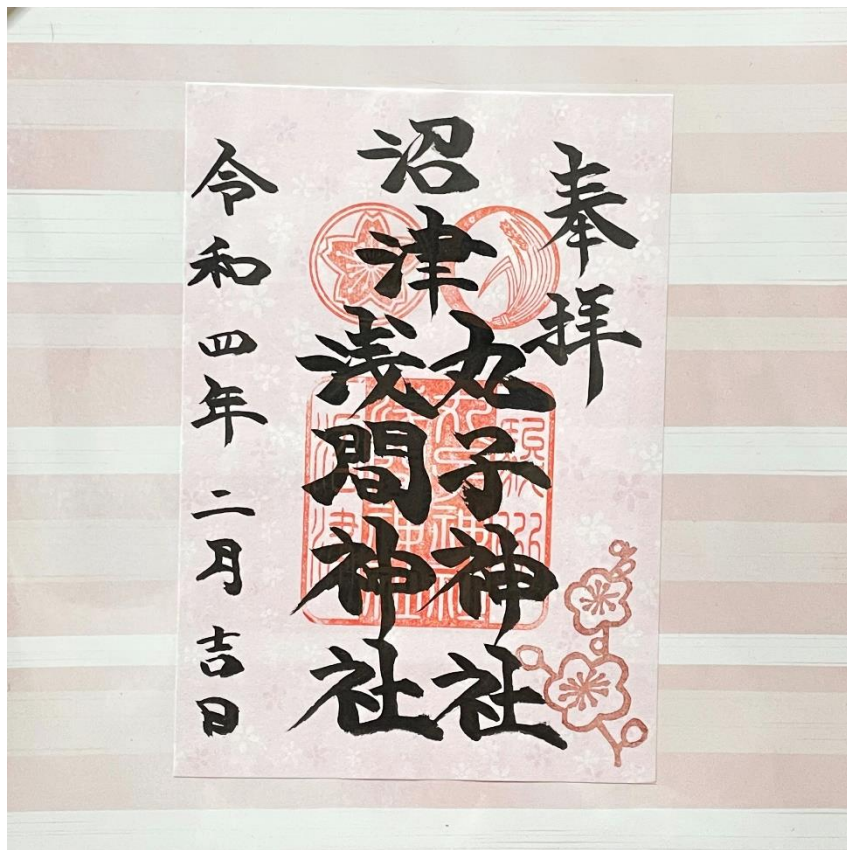 奉拝
沼津
丸子神社
浅間神社
令和四年二月吉日